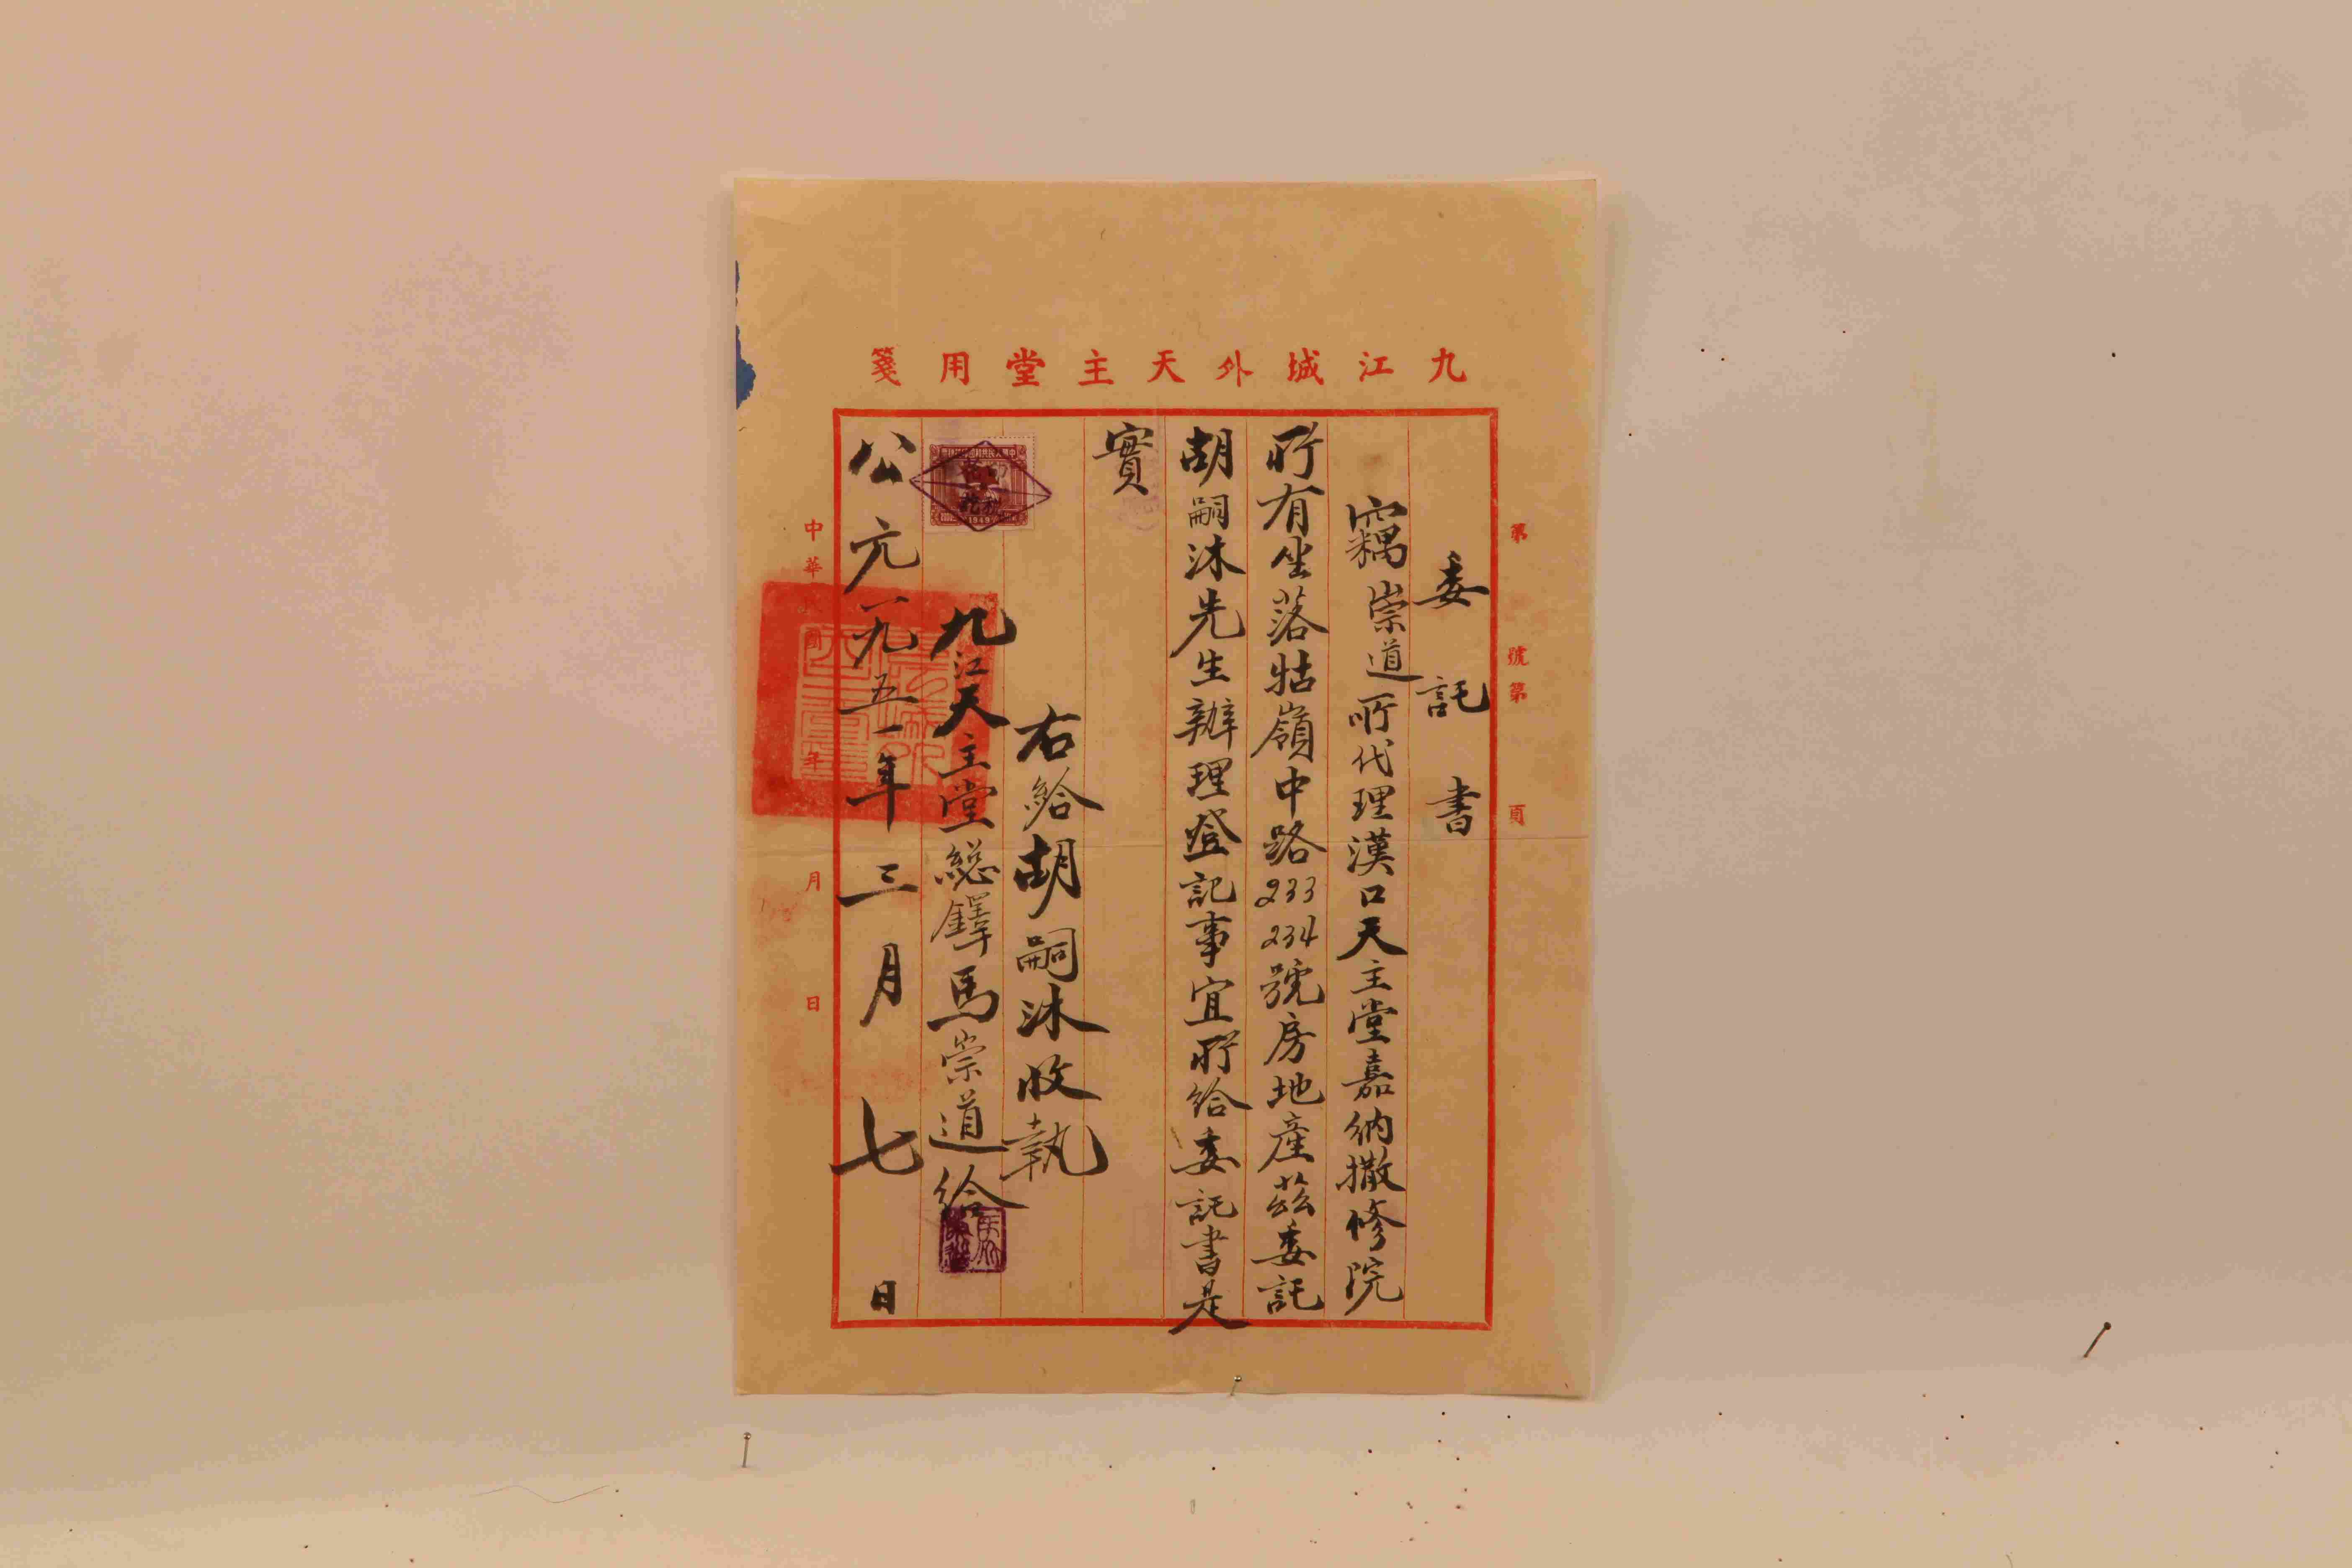 九江城外天主堂用箋
第　號第　頁
委託書
竊崇道所代理漢口天主堂嘉納撒修院
所有坐落牯嶺中路233 234號房地產茲委託
胡嗣沐先生辦理登記事宜所給委託書是
實
右給胡嗣沐收執
九江天主堂總鐸馬崇道給
1949
公元一九五一年三月七日
中華民國　年　月　日